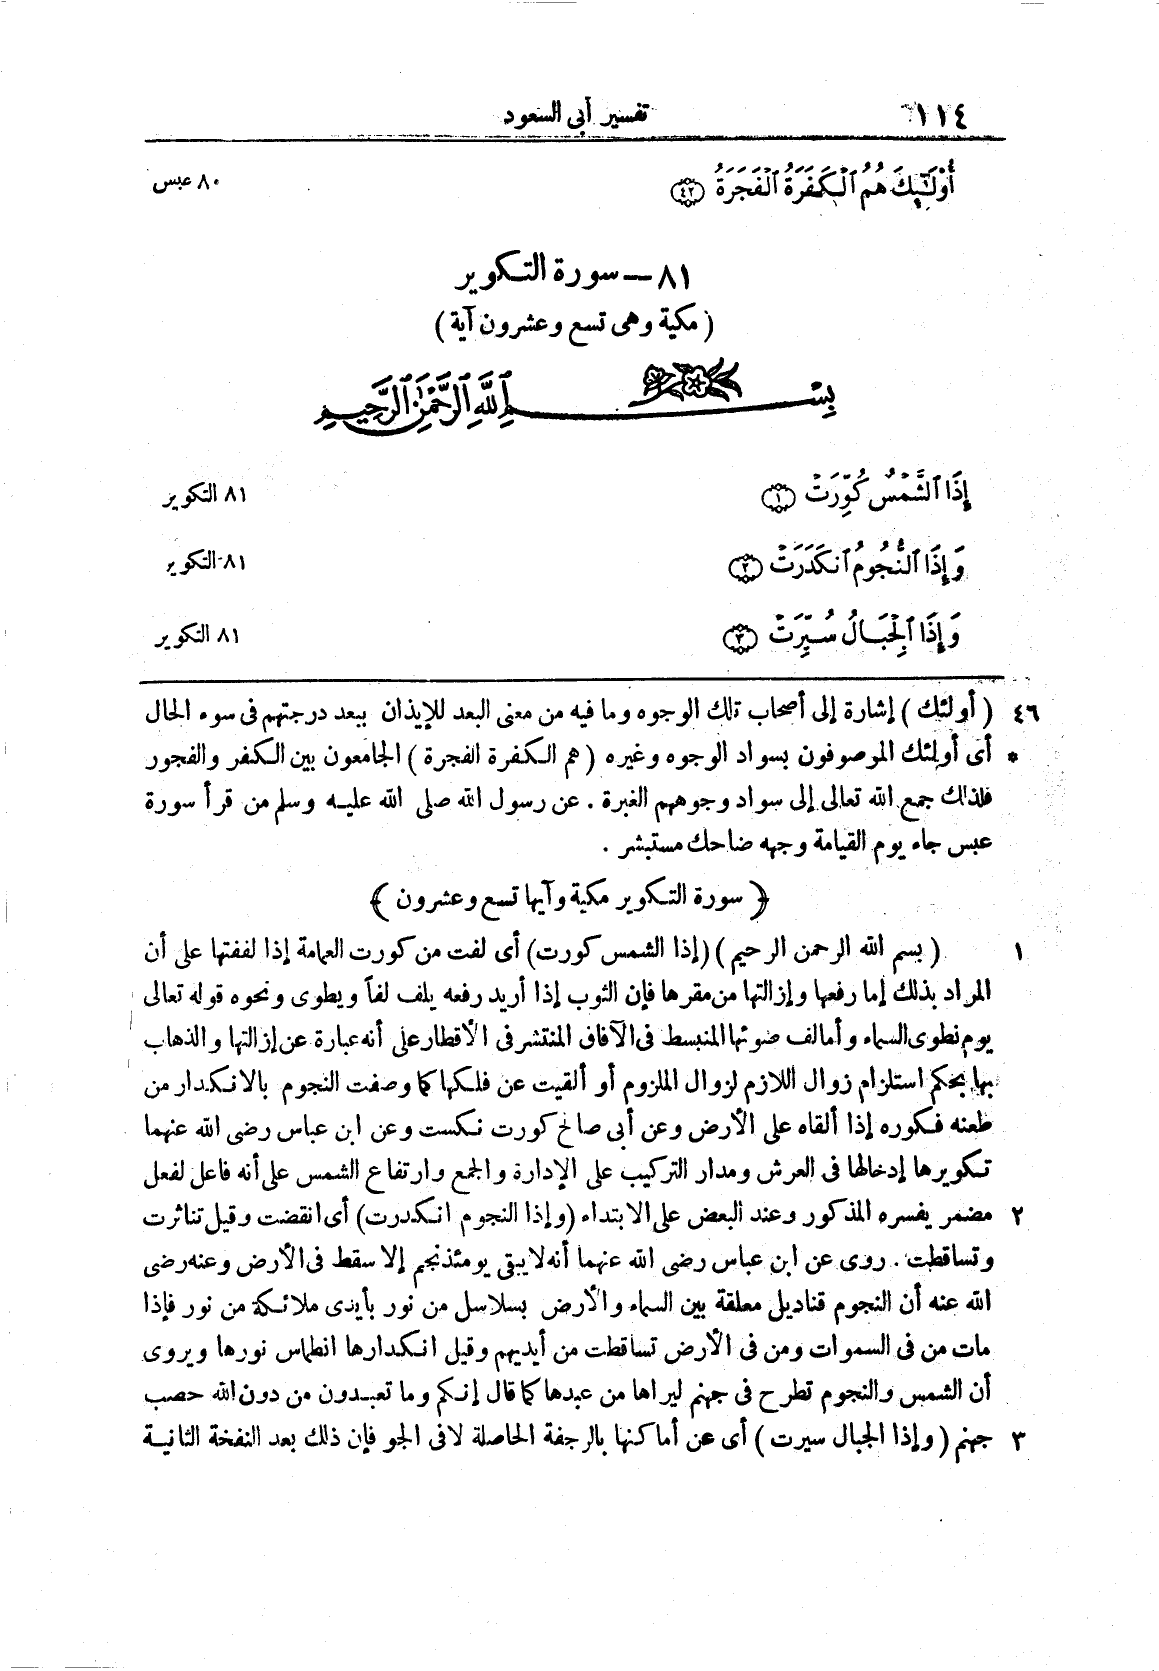 ١١٤ تفسير أبى السعود
أُوْلَٰٓئِكَ هُمُ ٱلْكَفَرَةُ ٱلْفَجَرَةُ ﴿٤٢﴾ ٨٠ عبس
٨١ — سورة التكوير
( مكية وهى تسع وعشرون آية )
بِسْمِ ٱللَّهِ ٱلرَّحْمَٰنِ ٱلرَّحِيمِ
إِذَا ٱلشَّمْسُ كُوِّرَتْ ﴿١﴾ ٨١ التكوير
وَإِذَا ٱلنُّجُومُ ٱنكَدَرَتْ ﴿٢﴾ ٨١ التكوير
وَإِذَا ٱلْجِبَالُ سُيِّرَتْ ﴿٣﴾ ٨١ التكوير
٤٦ ( أولئك ) إشارة إلى أصحاب تلك الوجوه وما فيه من معنى البعد للإيذان ببعد درجتهم فى سوء الحال
* أى أولئك الموصوفون بسواد الوجوه وغيره ( هم الكفرة الفجرة ) الجامعون بين الكفر والفجور
فلذلك جمع الله تعالى إلى سواد وجوههم الغبرة . عن رسول الله صلى الله عليه وسلم من قرأ سورة
عبس جاء يوم القيامة وجهه ضاحك مستبشر .
﴿ سورة التكوير مكية وآيها تسع وعشرون ﴾
١ ( بسم الله الرحمن الرحيم ) (إذا الشمس كورت) أى لفت من كورت العمامة إذا لففتها على أن
المراد بذلك إما رفعها وإزالتها من مقرها فإن الثوب إذا أريد رفعه يلف لفاً ويطوى ونحوه قوله تعالى
يوم نطوى السماء وأما لف ضوئها المنبسط فى الآفاق المنتشر فى الأقطار على أنه عبارة عن إزالتها والذهاب
بها بحكم استلزام زوال اللازم لزوال الملزوم أو ألقيت عن فلكها كما وصفت النجوم بالانكدار من
طعنه فكوره إذا ألقاه على الأرض وعن أبى صالح كورت نكست وعن ابن عباس رضى الله عنهما
تكويرها إدخالها فى العرش ومدار التركيب على الإدارة والجمع وارتفاع الشمس على أنه فاعل لفعل
٢ مضمر يفسره المذكور وعند البعض على الابتداء (وإذا النجوم انكدرت) أى انقضت وقيل تناثرت
وتساقطت . روى عن ابن عباس رضى الله عنهما أنه لا يبقى يومئذ نجم إلا سقط فى الأرض وعنه رضى
الله عنه أن النجوم قناديل معلقة بين السماء والأرض بسلاسل من نور بأيدى ملائكة من نور فإذا
مات من فى السموات ومن فى الأرض تساقطت من أيديهم وقيل انكدارها انطماس نورها ويروى
أن الشمس والنجوم تطرح فى جهنم ليراها من عبدها كما قال إنكم وما تعبدون من دون الله حصب
٣ جهنم ( وإذا الجبال سيرت ) أى عن أماكنها بالرجفة الحاصلة لا فى الجو فإن ذلك بعد النفخة الثانية